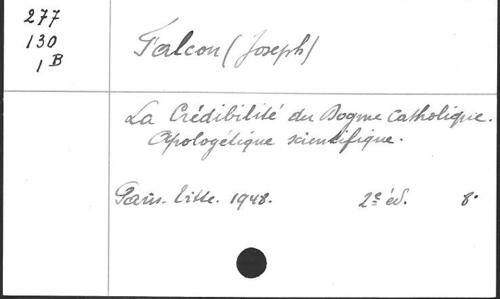 277
130
1 B
Falcon (Joseph)
La Crédibilité du Dogme Catholique.
Apologétique scientifique.
Paris. Vitte. 1948. 2e éd. 8°